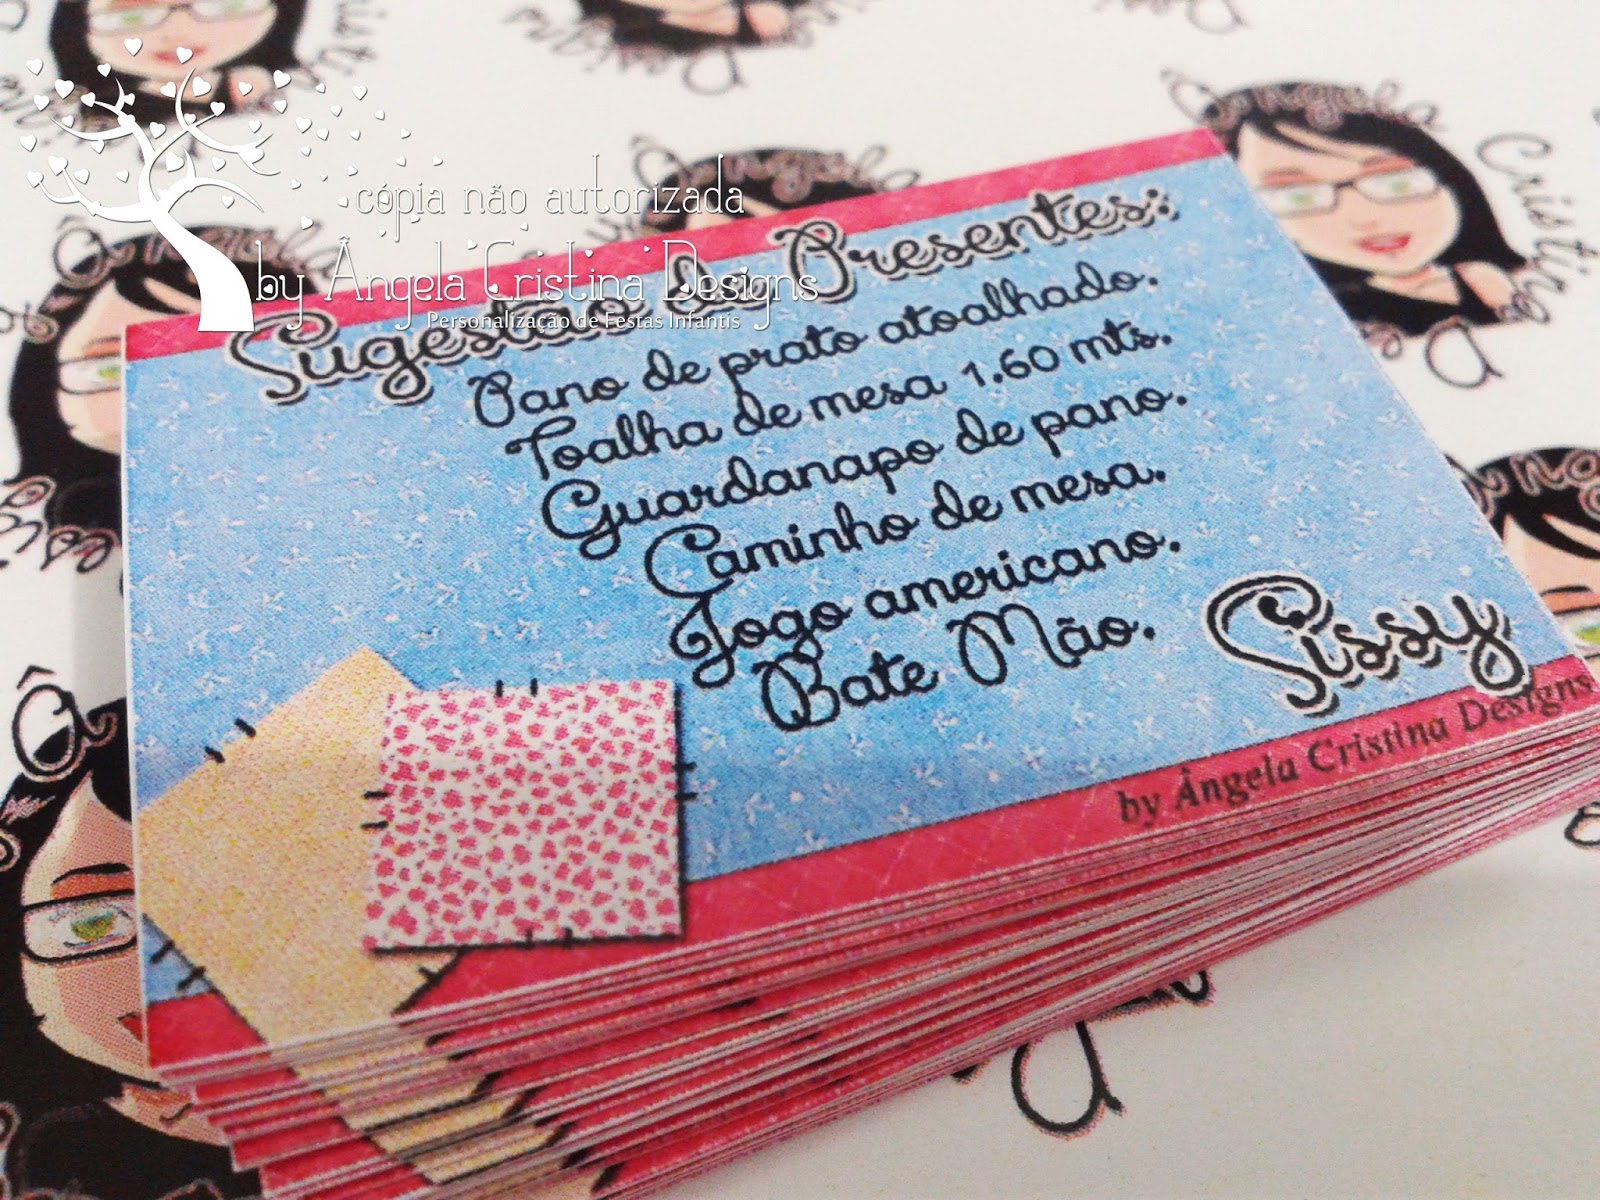 cópia não autorizada
by Ângela Cristina Designs
Personalização de Festas Infantis
Sugestão de Presentes:
Pano de prato atoalhado.
Toalha de mesa 1.60 mts.
Guardanapo de pano.
Caminho de mesa.
Jogo americano.
Bate Mão.
Sissy
by Ângela Cristina Designs
Ângela
Cristina